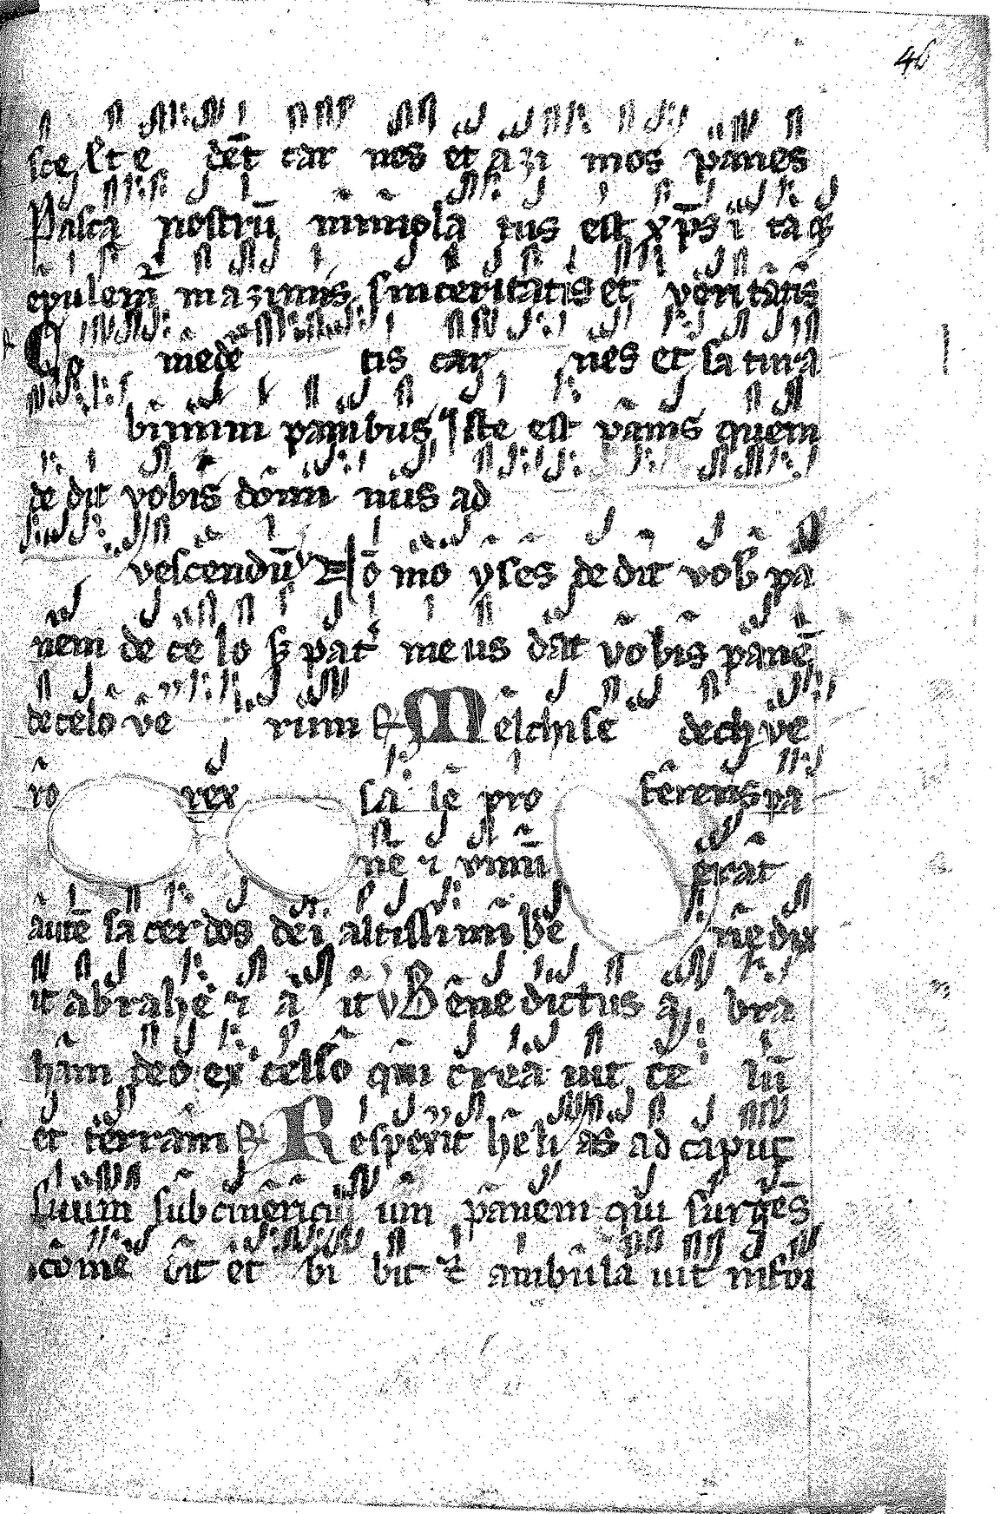 46
sce Et e dēt car nes et azi mos panes
Pasca nostrū īmmola tus est xp̄s i taq
epulem̄ in azimis sinceritatis et veritatis
Co mede tis car nes et satura
bimini panibus Iste est panis quem
de dit vobis domi nus ad
vescendū V No mo yses de dit vob pa
nem de ce lo sꝫ pat meus dat vobis panē
de celo ve rum R Melchise dech ve
ro rex sa lē pro ferens pa
nē ⁊ vinū erat
autē sa cer dos dei altissimi be ne dix
it abrahe ⁊ a it V Bene dictus a bra
ham deo ex celso qui crea uit ce lū
et terram R Respexit heli as ad caput
suum subcinerici um panem qui surgēs
come dit et bi bit ⁊ ambula uit in for